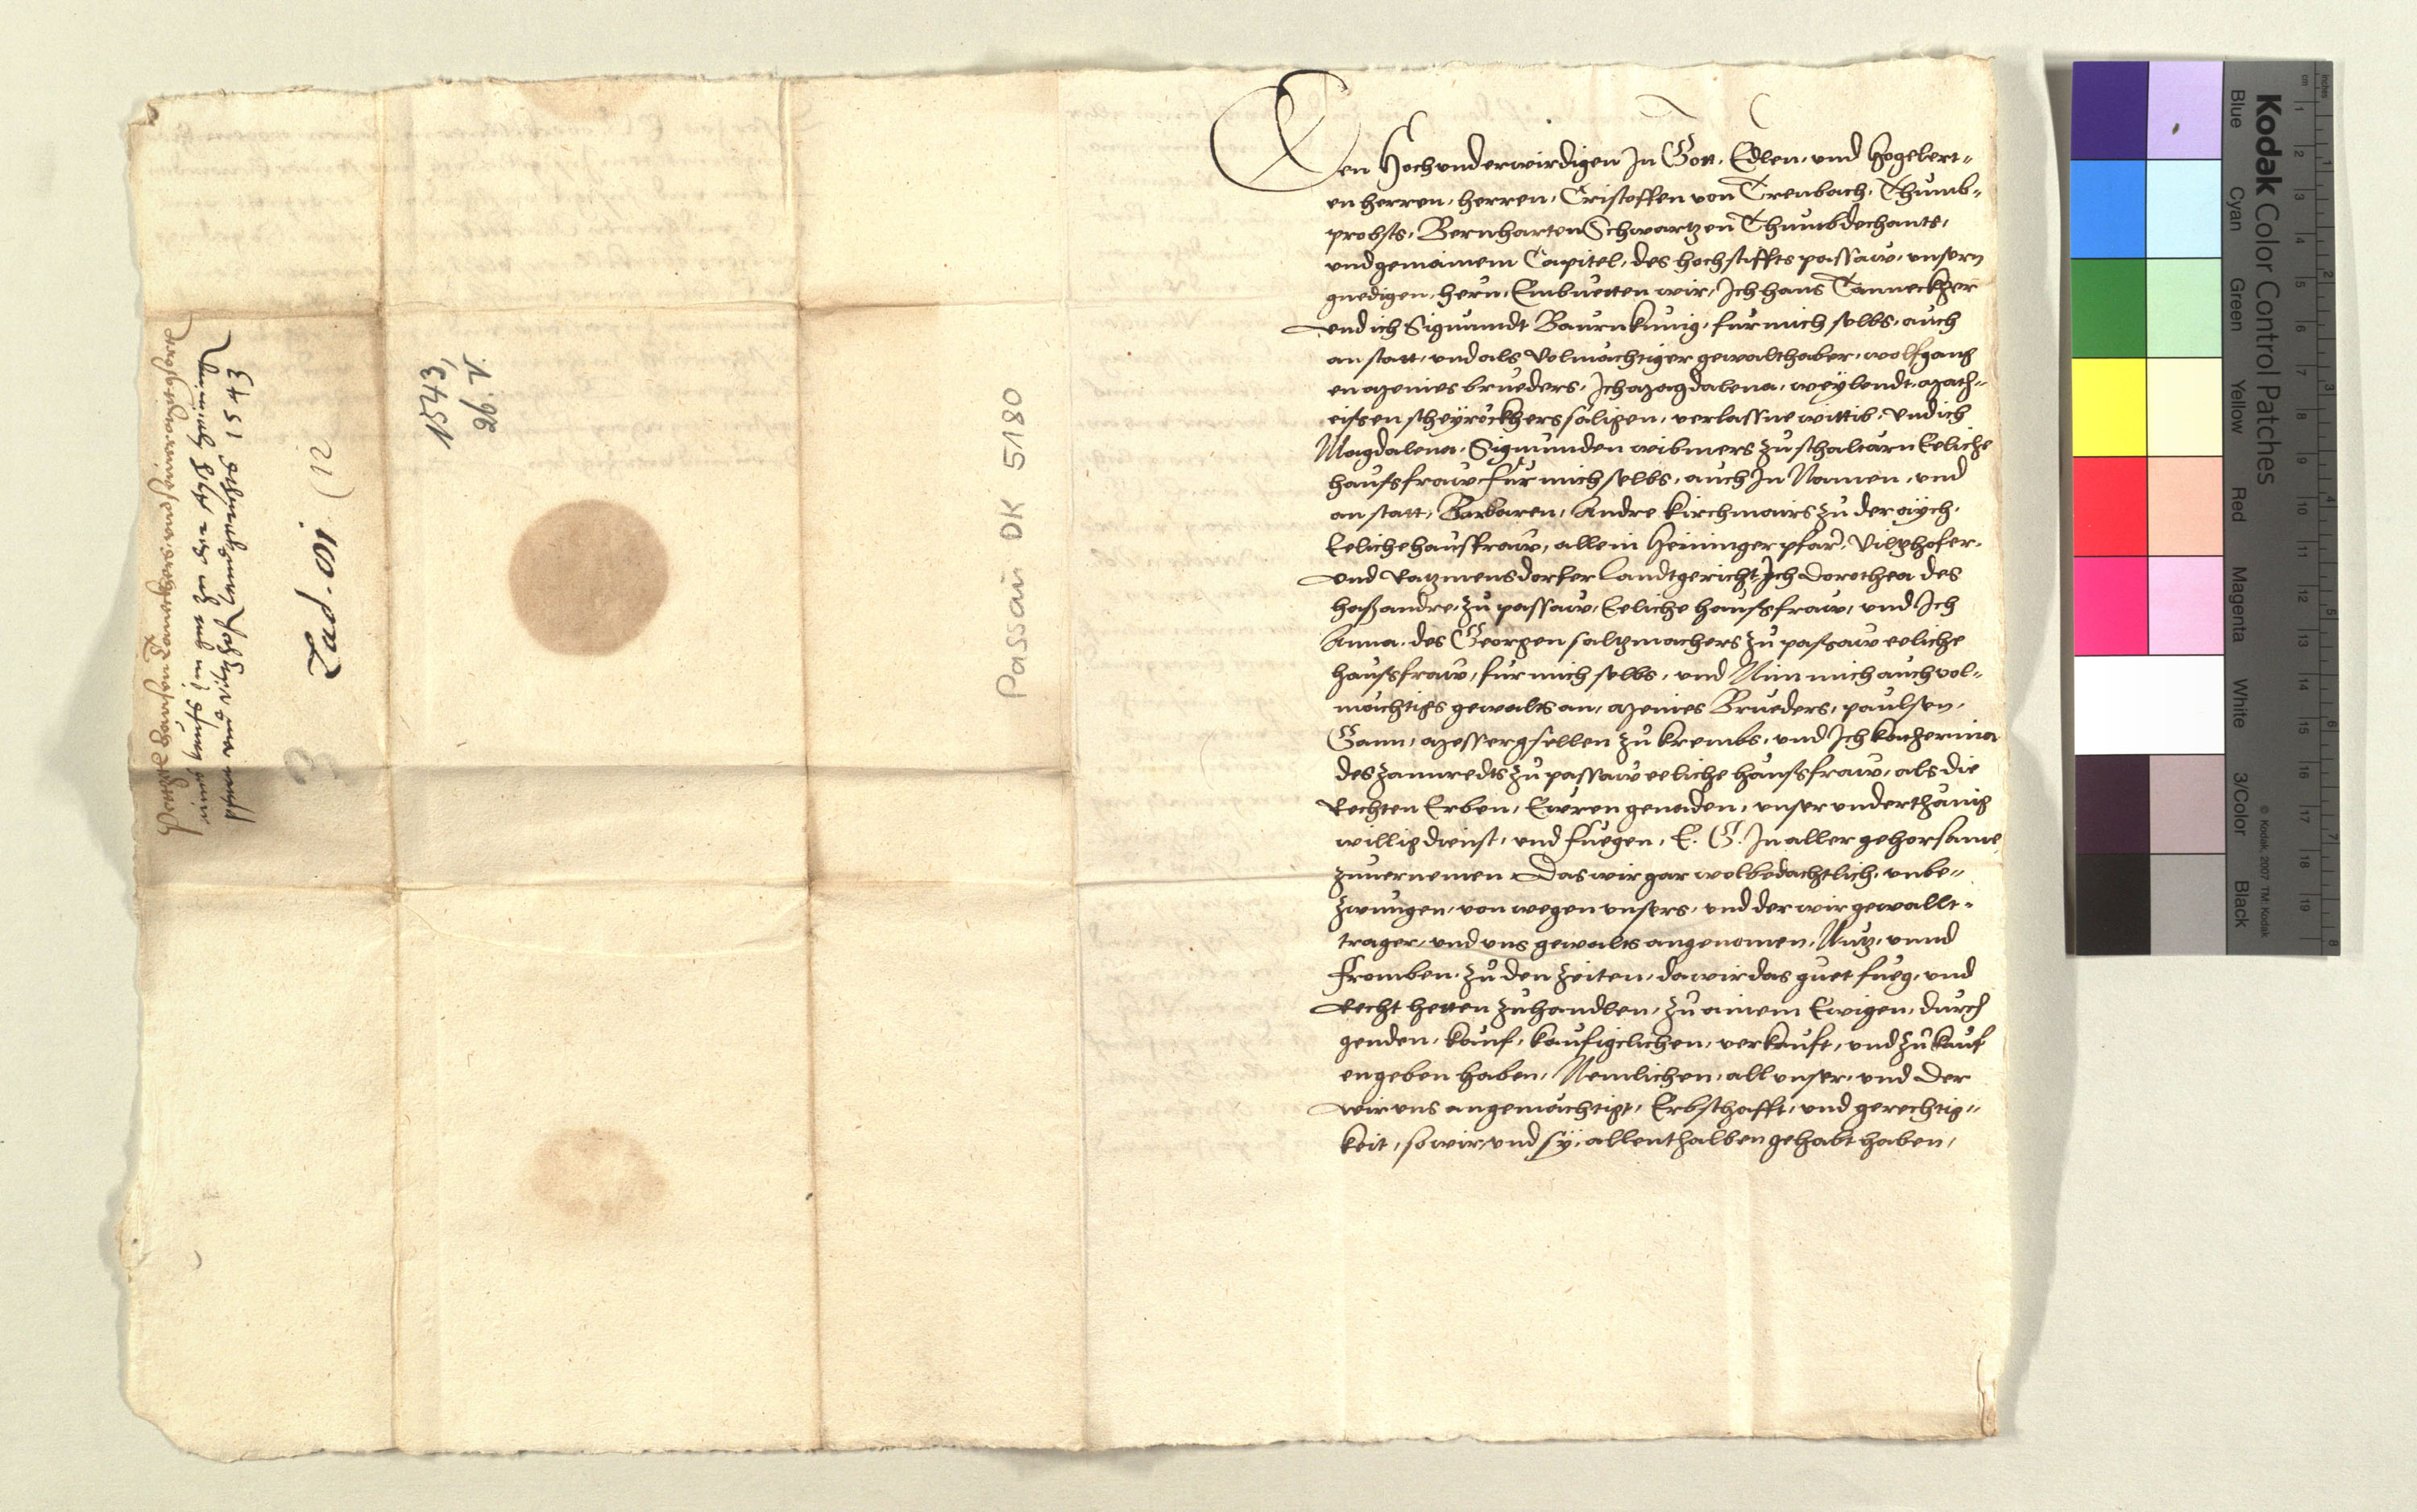 Den Hochunderwirdigen In Gott, Edlen, und Hogelert-
en herren, herren, Cristoffen von Trenbach, Thumb-
probsts, Bernharten Schwartzen Thumbdechants,
und gemainem Capitel, des hochstiffts passaw, unsern
gnedigen, hern, Embuetten wir, Ich hans Tanneckher
und ich Sigmundt Baurnkunig, fur mich selbs, auch
an statt, und als Volmächtiger gewalthaber, wolfgang
en meines brueders, Ich Magdalena, weylendt, Math-
eissen scheyröckhers säligen, verlassne wittib, und ich
Magdalena, Sigmunden widmers zu schaltarn Eeliche
haussfraw fur mich selbs, auch In Namen, und
an statt, Barbaren, Andre kirchmairs zu der aych,
Eeliche hausfraw, all in Heininger pfar, Vilshofer,
und Ratzmensdorfer Landtgericht, Ich Dorothea des
hass andre, zu passaw, Eeliche haussfraw, und Ich
Anna, des Georgen saltzmachers zu passaw eeliche
haussfraw, fur mich selbs, und Nim mich auch vol-
mächtigs gewalts an, meines Brueders, paulsen,
Gann, Messergsellen zu krembs, und Ich katherina
des zannredts zu passaw eeliche haussfraw, als die
Rechten Erben, Ewren genaden, unser underthänig
willig dienst, und fuegen, E. G. In aller gehorsame,
zuvernemen Das wir gar wolbedachtlich, unbe-
zwungen, von wegen unsers, und der wir gewallt-
trager, und uns gewalts angenomen, Nutz, unnd
fromben, zu den zeiten, da wir das guet fueg, und
Recht hetten zuhandlen, zu ainem Ewigen, durch
genden, kauf, kaufigclichen, verkauft, und zu kauf
en geben haben, Nemlichen, all unser, und Der
wir uns angemächtigt, Erbschafft, und gerechtig-
keit, so wir, und sy, allenthalben gehabt haben,
Passau DK 5180
1543
Lad. 10.
(12
1543
Kodak Color Control Patches
Blue Cyan Green Yellow Red Magenta White 3/Color Black
© Kodak, 2007 TM: Kodak